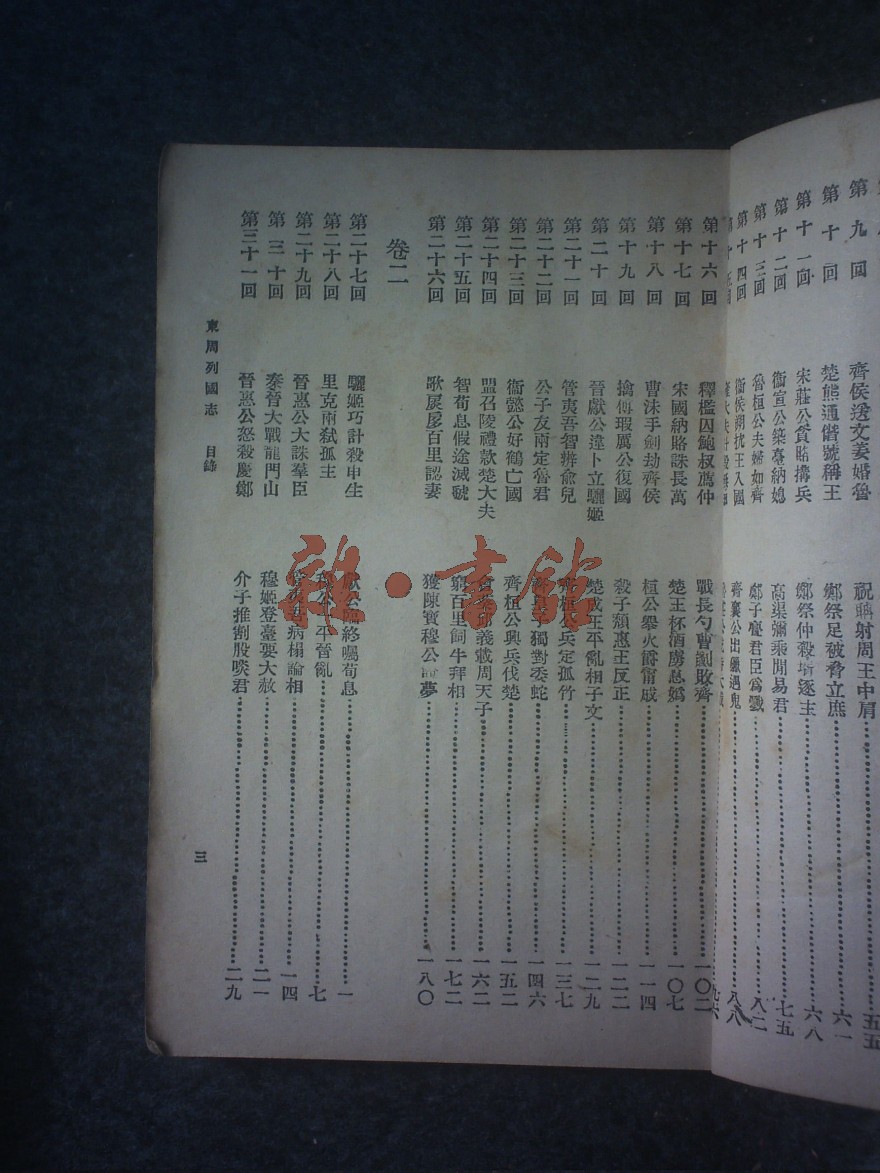 第九回　齊侯送文姜婚魯　祝聃射周王中肩　五五
第十回　楚熊通僭號稱王　鄭祭足被脅立庶　六一
第十一回　宋莊公貪賂搆兵　鄭祭仲殺壻逐主　六八
第十二回　衞宣公築臺納媳　高渠彌乘閒易君　七五
第十三回　魯桓公夫婦如齊　鄭子亹君臣爲戮　八二
第十四回　衞侯朔抗王入國　齊襄公出獵遇鬼　八八
第十五回　九六
第十六回　釋檻囚鮑叔薦仲　戰長勺曹劌敗齊　一〇二
第十七回　宋國納賂誅長萬　楚王杯酒虜息嬀　一〇七
第十八回　曹沬手劍劫齊侯　桓公舉火爵甯戚　一一四
第十九回　擒傅瑕厲公復國　殺子頹惠王反正　一二二
第二十回　晉獻公違卜立驪姬　楚成王平亂相子文　一二九
第二十一回　管夷吾智辨俞兒　齊桓公兵定孤竹　一三七
第二十二回　公子友兩定魯君　齊皇子獨對委蛇　一四六
第二十三回　衞懿公好鶴亡國　齊桓公興兵伐楚　一五二
第二十四回　盟召陵禮款楚大夫　會葵邱義戴周天子　一六二
第二十五回　智荀息假途滅虢　窮百里飼牛拜相　一七二
第二十六回　歌扊扅百里認妻　獲陳寶穆公證夢　一八〇
卷二
第二十七回　驪姬巧計殺申生　獻公臨終囑荀息　一
第二十八回　里克兩弒孤主　穆公一平晉亂　七
第二十九回　晉惠公大誅羣臣　管夷吾病榻論相　一四
第三十回　秦晉大戰龍門山　穆姬登臺要大赦　二一
第三十一回　晉惠公怒殺慶鄭　介子推割股啖君　二九
東周列國志　目錄
三
雜·書館